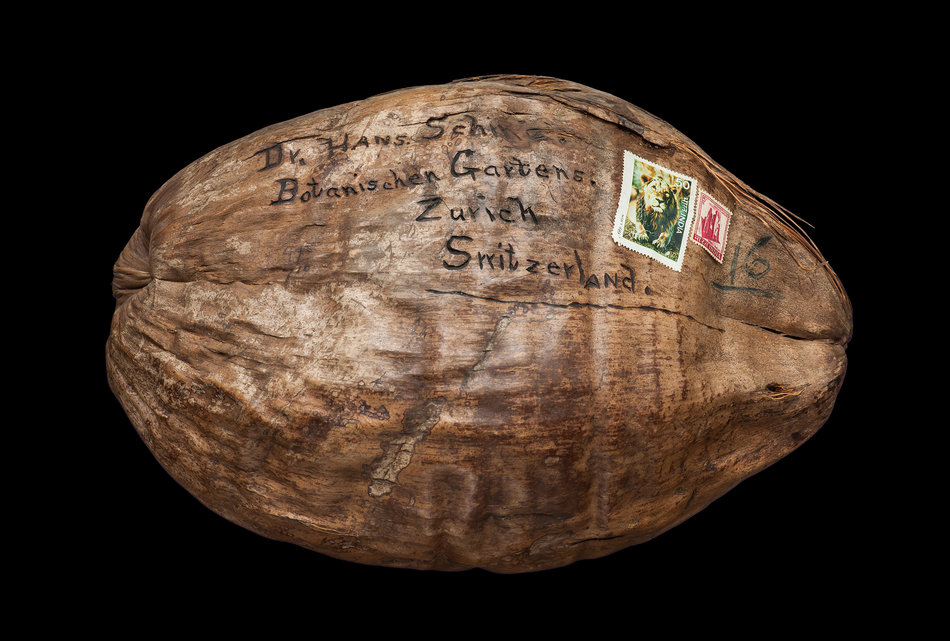 Dr. HANS. Schinz.
Botanischen Gartens.
Zurich
Switzerland.
50
INDIA
16